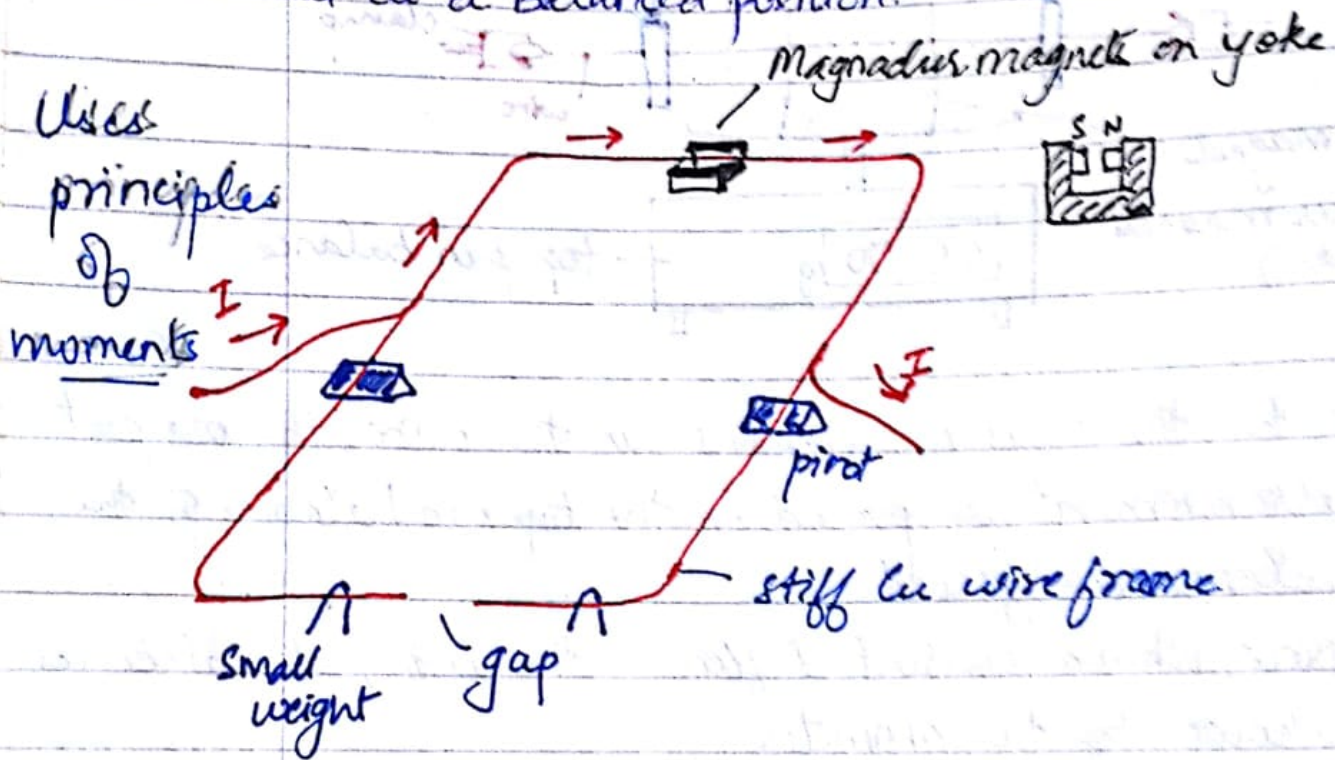 a balanced position.
Magnadur magnets on yoke
Uses
principles
of
moments
S N
I
I
pivot
stiff Cu wire frame
Small
weight
gap